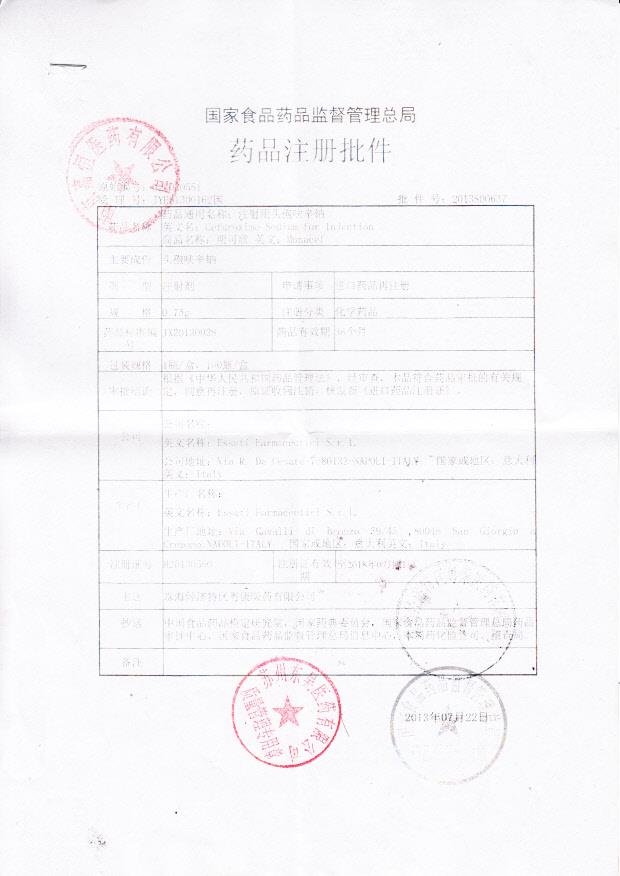 国家食品药品监督管理总局
药品注册批件
受 理 号: JYHZ1300162国 批 件 号: 2013S00637
药品名称 药品通用名称: 注射用头孢呋辛钠
英文名: Cefuroxime Sodium for Injection
商品名称: 明可欣 英文: Monacef
主要成份 头孢呋辛钠
剂 型 注射剂 申请事项 进口药品再注册
规 格 0.75g 注册分类 化学药品
药品标准编号 JX20130028 药品有效期 36个月
包装规格 1瓶/盒, 100瓶/盒
审批结论 根据《中华人民共和国药品管理法》, 经审查, 本品符合药品审批的有关规
定, 同意再注册, 原证收回注销, 核发新《进口药品注册证》。
公司 公司名称:
英文名称: Esseti Farmaceutici S.r.l.
公司地址: Via R. De Cesare 7 80132-NAPOLI-ITALY 国家或地区: 意大利
英文: Italy
生产厂 生产厂名称:
英文名称: Esseti Farmaceutici S.r.l.
生产厂地址: Via Cavalli di Bronzo 39/45 ,80046 San Giorgio a
Cremano NAPOLI-ITALY 国家或地区: 意大利英文: Italy
注册证号 注册证有效期 至2018年07月
主送 珠海经济特区粤康医药有限公司
抄送 中国食品药品检定研究院, 国家药典委员会, 国家食品药品监督管理总局药品
审评中心, 国家食品药品监督管理总局信息中心,
备注
苏州东吴医药有限公司
2013年07月22日